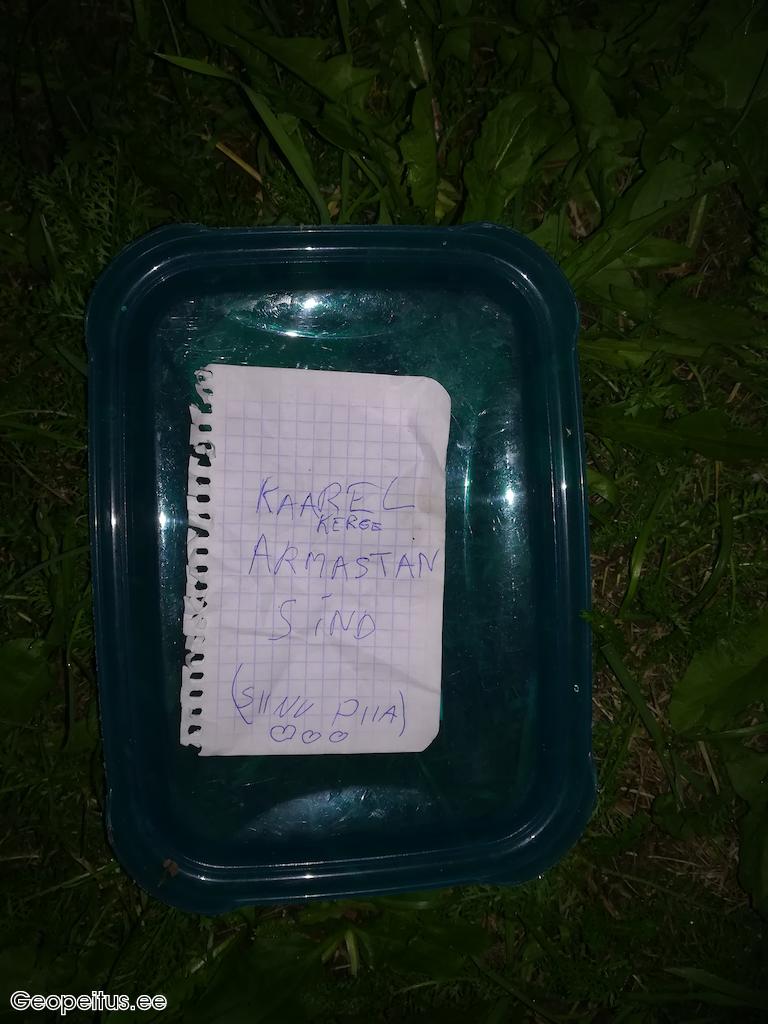 KAAREL
KERGE
ARMASTAN
SIND
(SIINU PIIA)
Geopeitus.ee